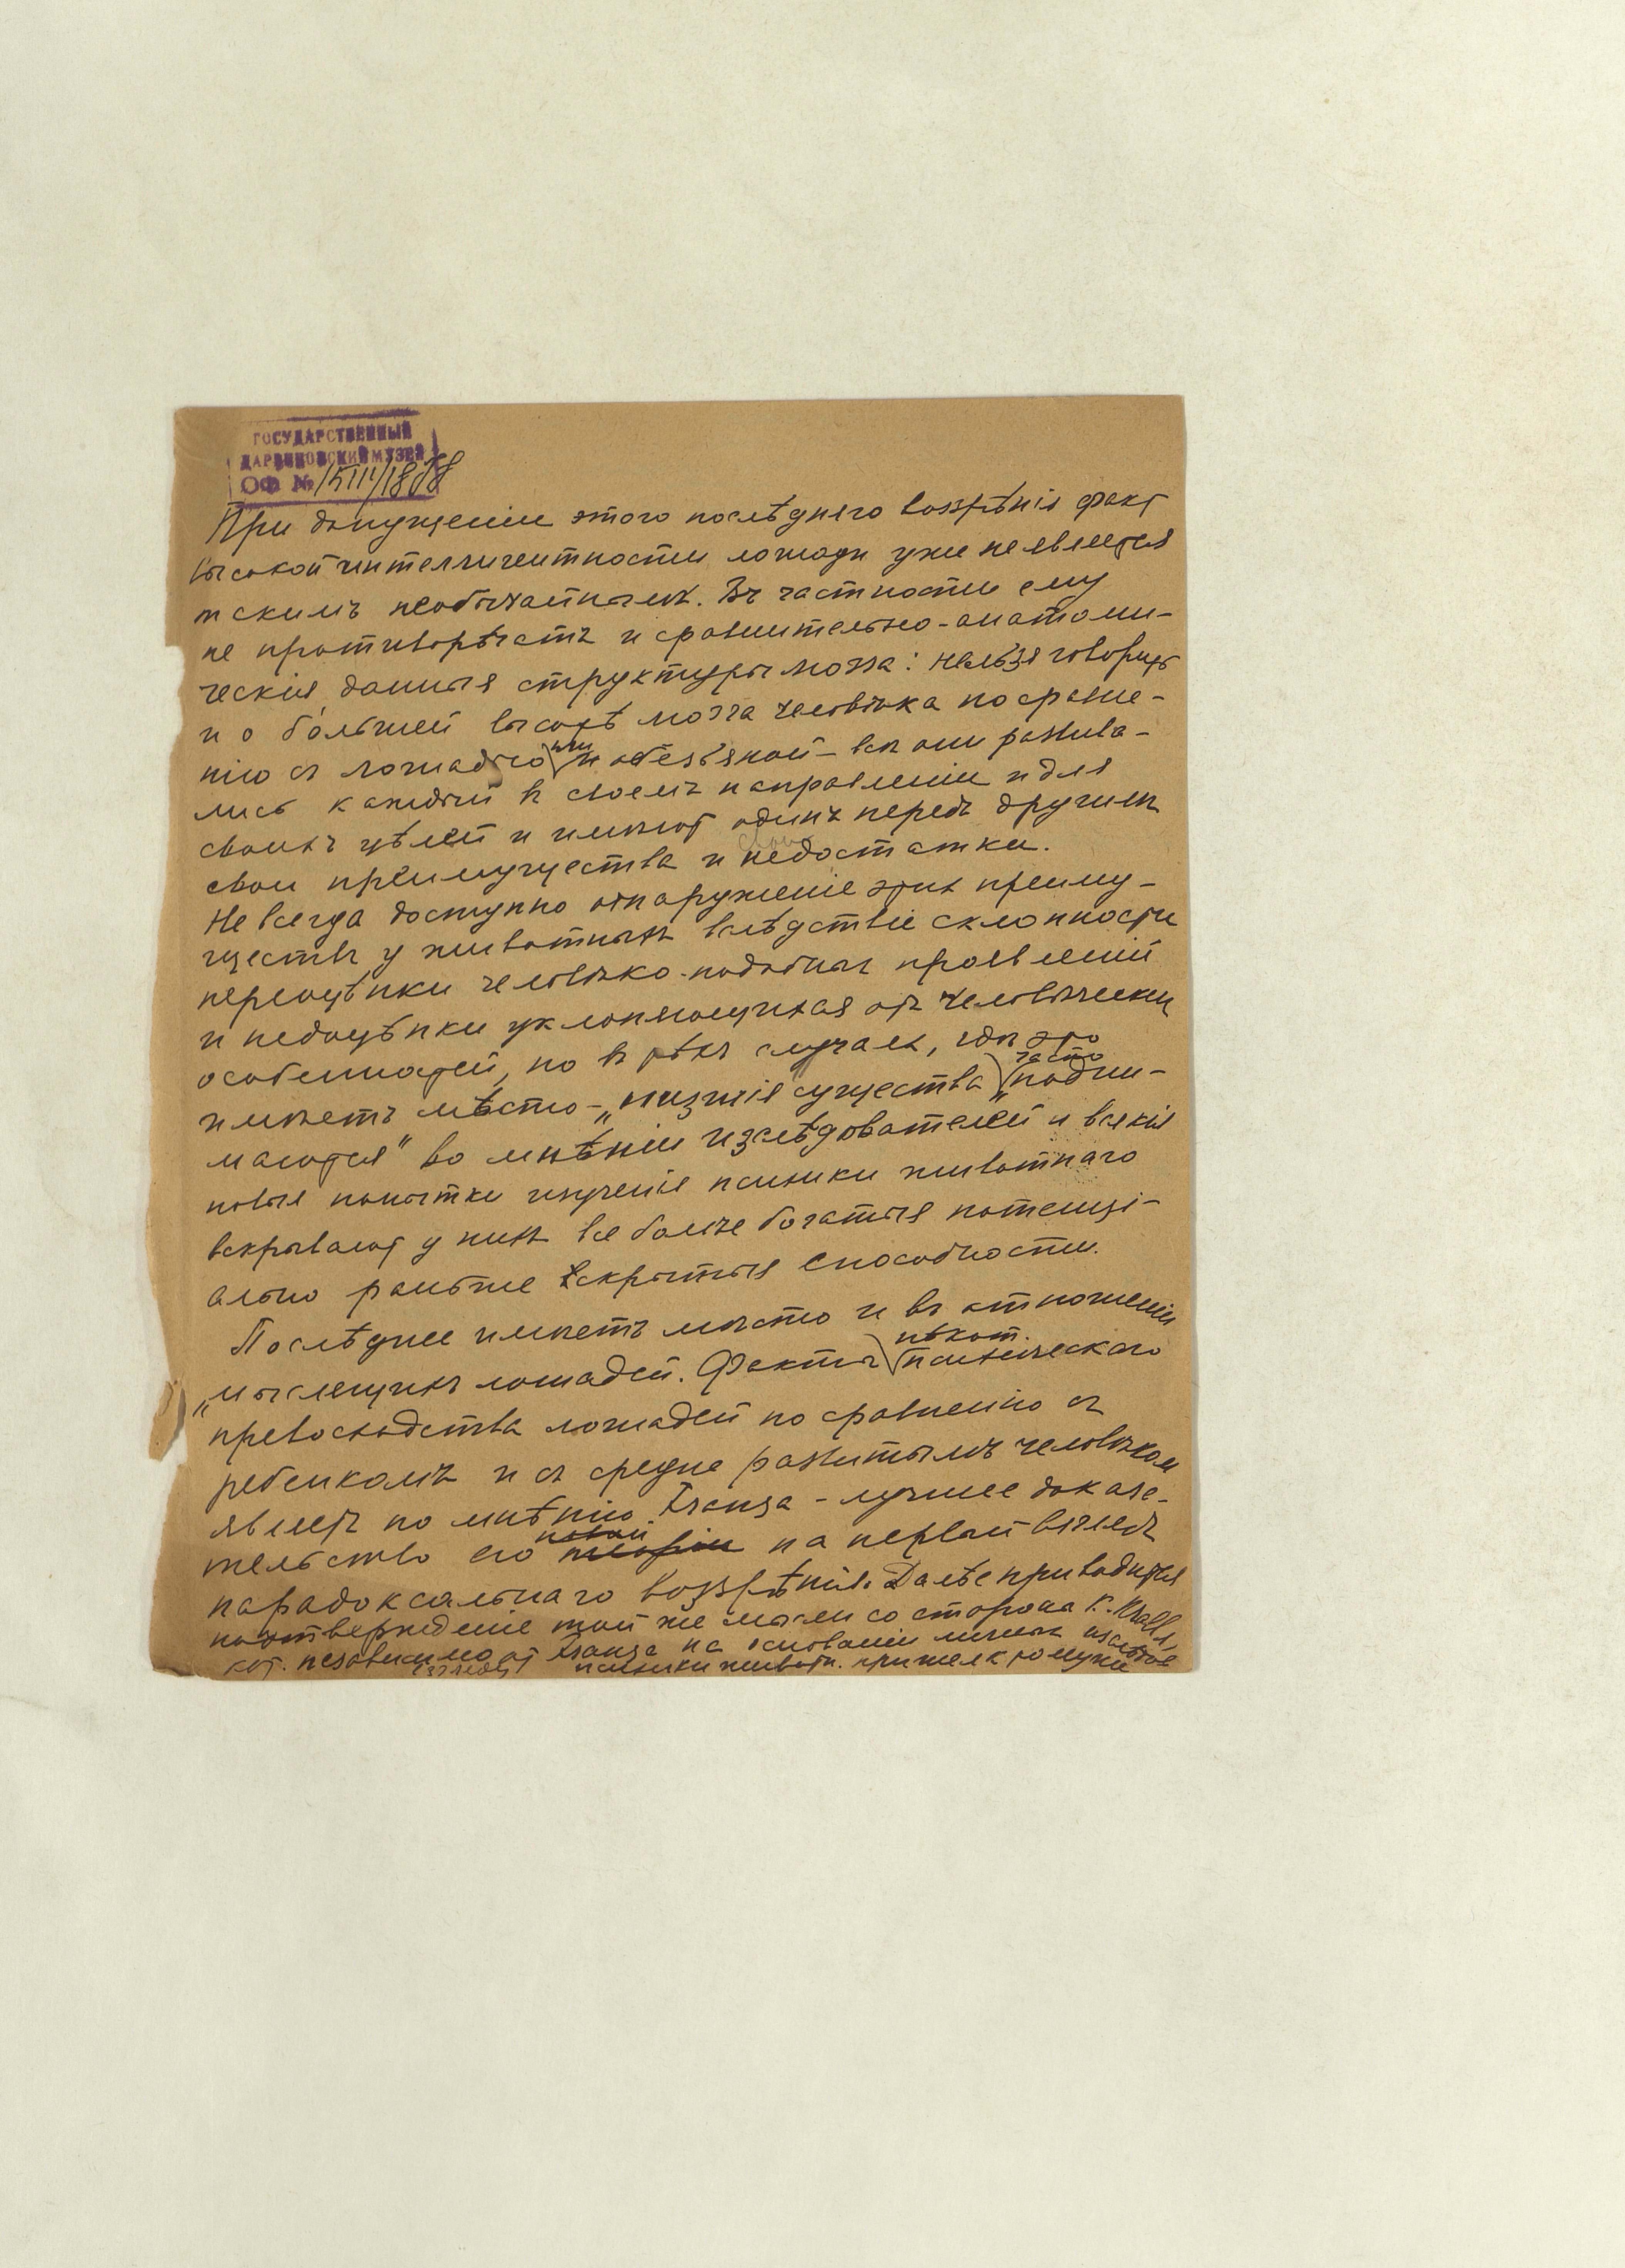 ГОСУДАРСТВЕННЫЙ
ДАРВИНОВСКИЙ МУЗЕЙ
ОФ №
При допущеніи этого послѣдняго воззрѣнія фактъ
высокой интеллигентности лошади уже не является
такимъ необычайнымъ. Въ частности ему
не противорѣчатъ и сравнительно-анатоми-
ческія данныя структуры мозга: нельзя говорить
и о бо́льшей высотѣ мозга человѣка по сравне-
нію съ лошадью или обезьяной – всѣ они развива-
лись каждый въ своемъ направленіи и для
своихъ цѣлей и имѣютъ одинъ передъ другимъ
свои преимущества и недостатки.
Не всегда доступно обнаруженіе этихъ преиму-
ществъ у животныхъ вслѣдствіе склонности
переоцѣнки человѣко-подобныхъ проявленій
и недооцѣнки уклоняющихся отъ человѣческихъ
особенностей, но въ тѣхъ случаяхъ, гдѣ это
имѣетъ мѣсто – „низшія существа часто „подни-
маются" во мнѣніи изслѣдователей и всякія
новыя попытки изученія психики животнаго
вскрываютъ у нихъ все болѣе богатыя потенці-
ально раньше скрытыя способности.
Послѣднее имѣетъ мѣсто и въ отношеніи
„мыслящихъ лошадей. Факты нѣкот. психическаго
превосходства лошадей по сравненію съ
ребенкомъ и съ средне развитымъ человѣкомъ
явл. по мнѣнію Franza – лучшее доказа-
тельство его на первый взглядъ
парадоксальнаго воззрѣнія. Далѣе приводится
подтвержденіе той же мысли со стороны К. Krall'я,
кот. независимо отъ Franza на основаніи личныхъ изслѣдов
психики животн. пришелъ къ тому же